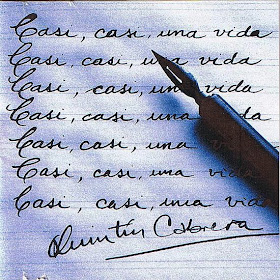 Casi, casi, una vida
Casi, casi, una vida
Casi, casi, un vida
Casi, casi, una da
Casi, casi, una vi
Casi, casi, una vida
Casi, casi, una vid
Quintín Cabrera